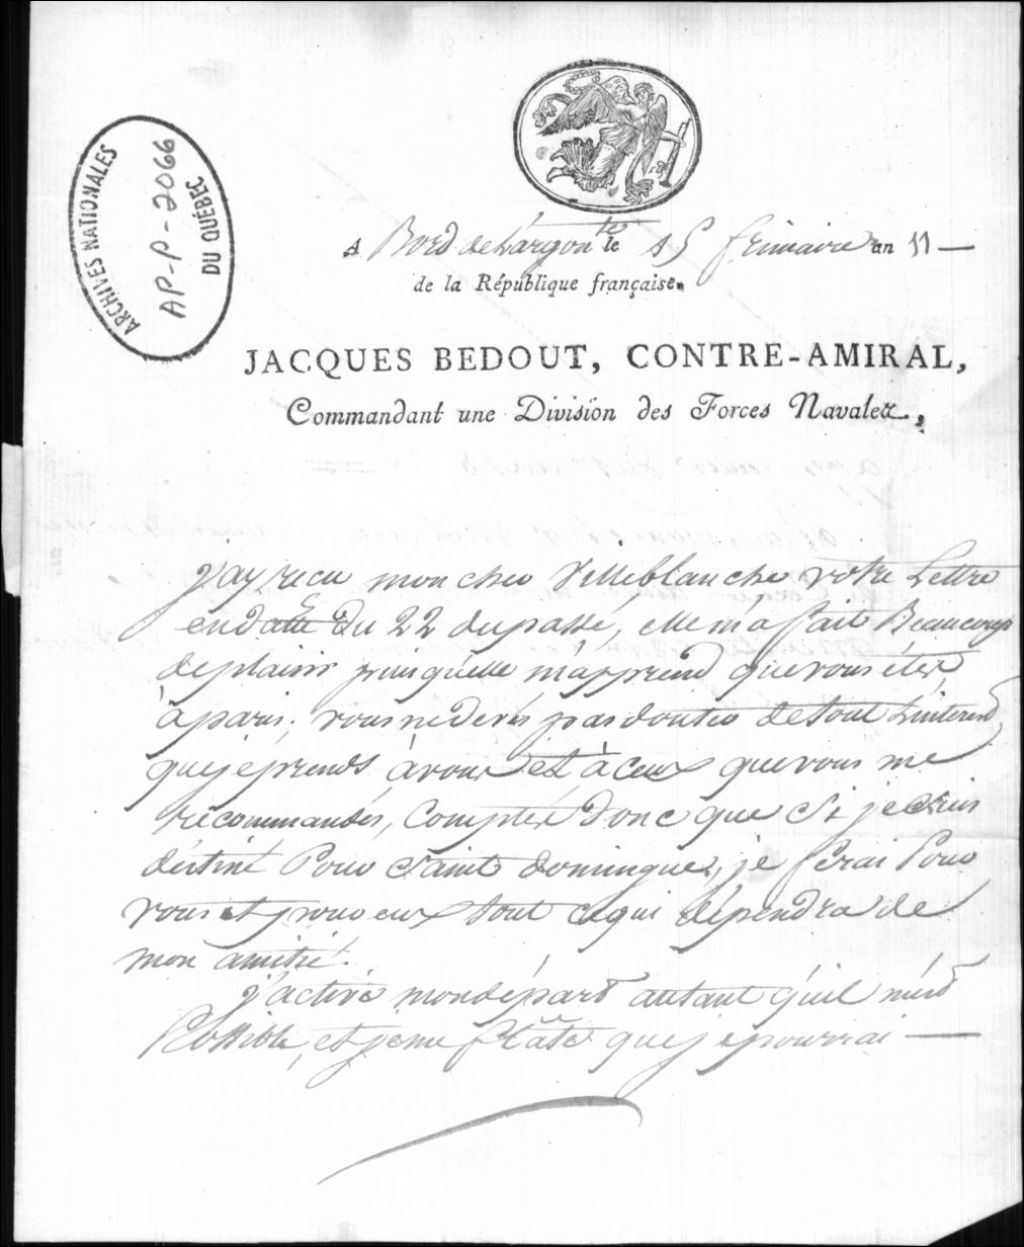 ARCHIVES NATIONALES
AP-P-2066
DU QUÉBEC
A Bord de L'argonte le 15 frimaire an 11 —
de la République française.
JACQUES BEDOUT, CONTRE-AMIRAL,
Commandant une Division des Forces Navales,
J'ay recu mon cher Villeblanche votre Lettre
en date Du 22 du passé, elle m'a fait Beaucoup
de plaisir puisquelle m'apprend que vous étes
à paris; vous ne devés pas douter de tout L'interest
que je prends à vous et à ceux que vous me
recommandés, Comptés Donc que Si je suis
déstiné Pour Saint domingue, je ferai Pour
vous et pour eux tout ce qui dépendra de
mon amitié.
J'active mon départ autant qu'il m'est
Possible, et je me flâte que je pourrai —